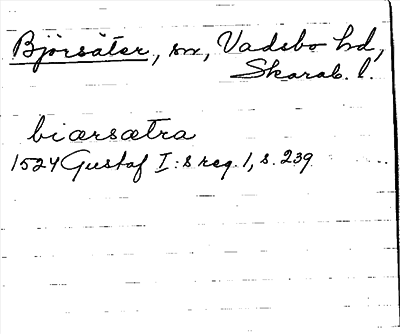 Björsäter, sn, Vadsbo hd,
Skarab. l.
biærsætra
1524 Gustaf I:s reg. 1, s. 239